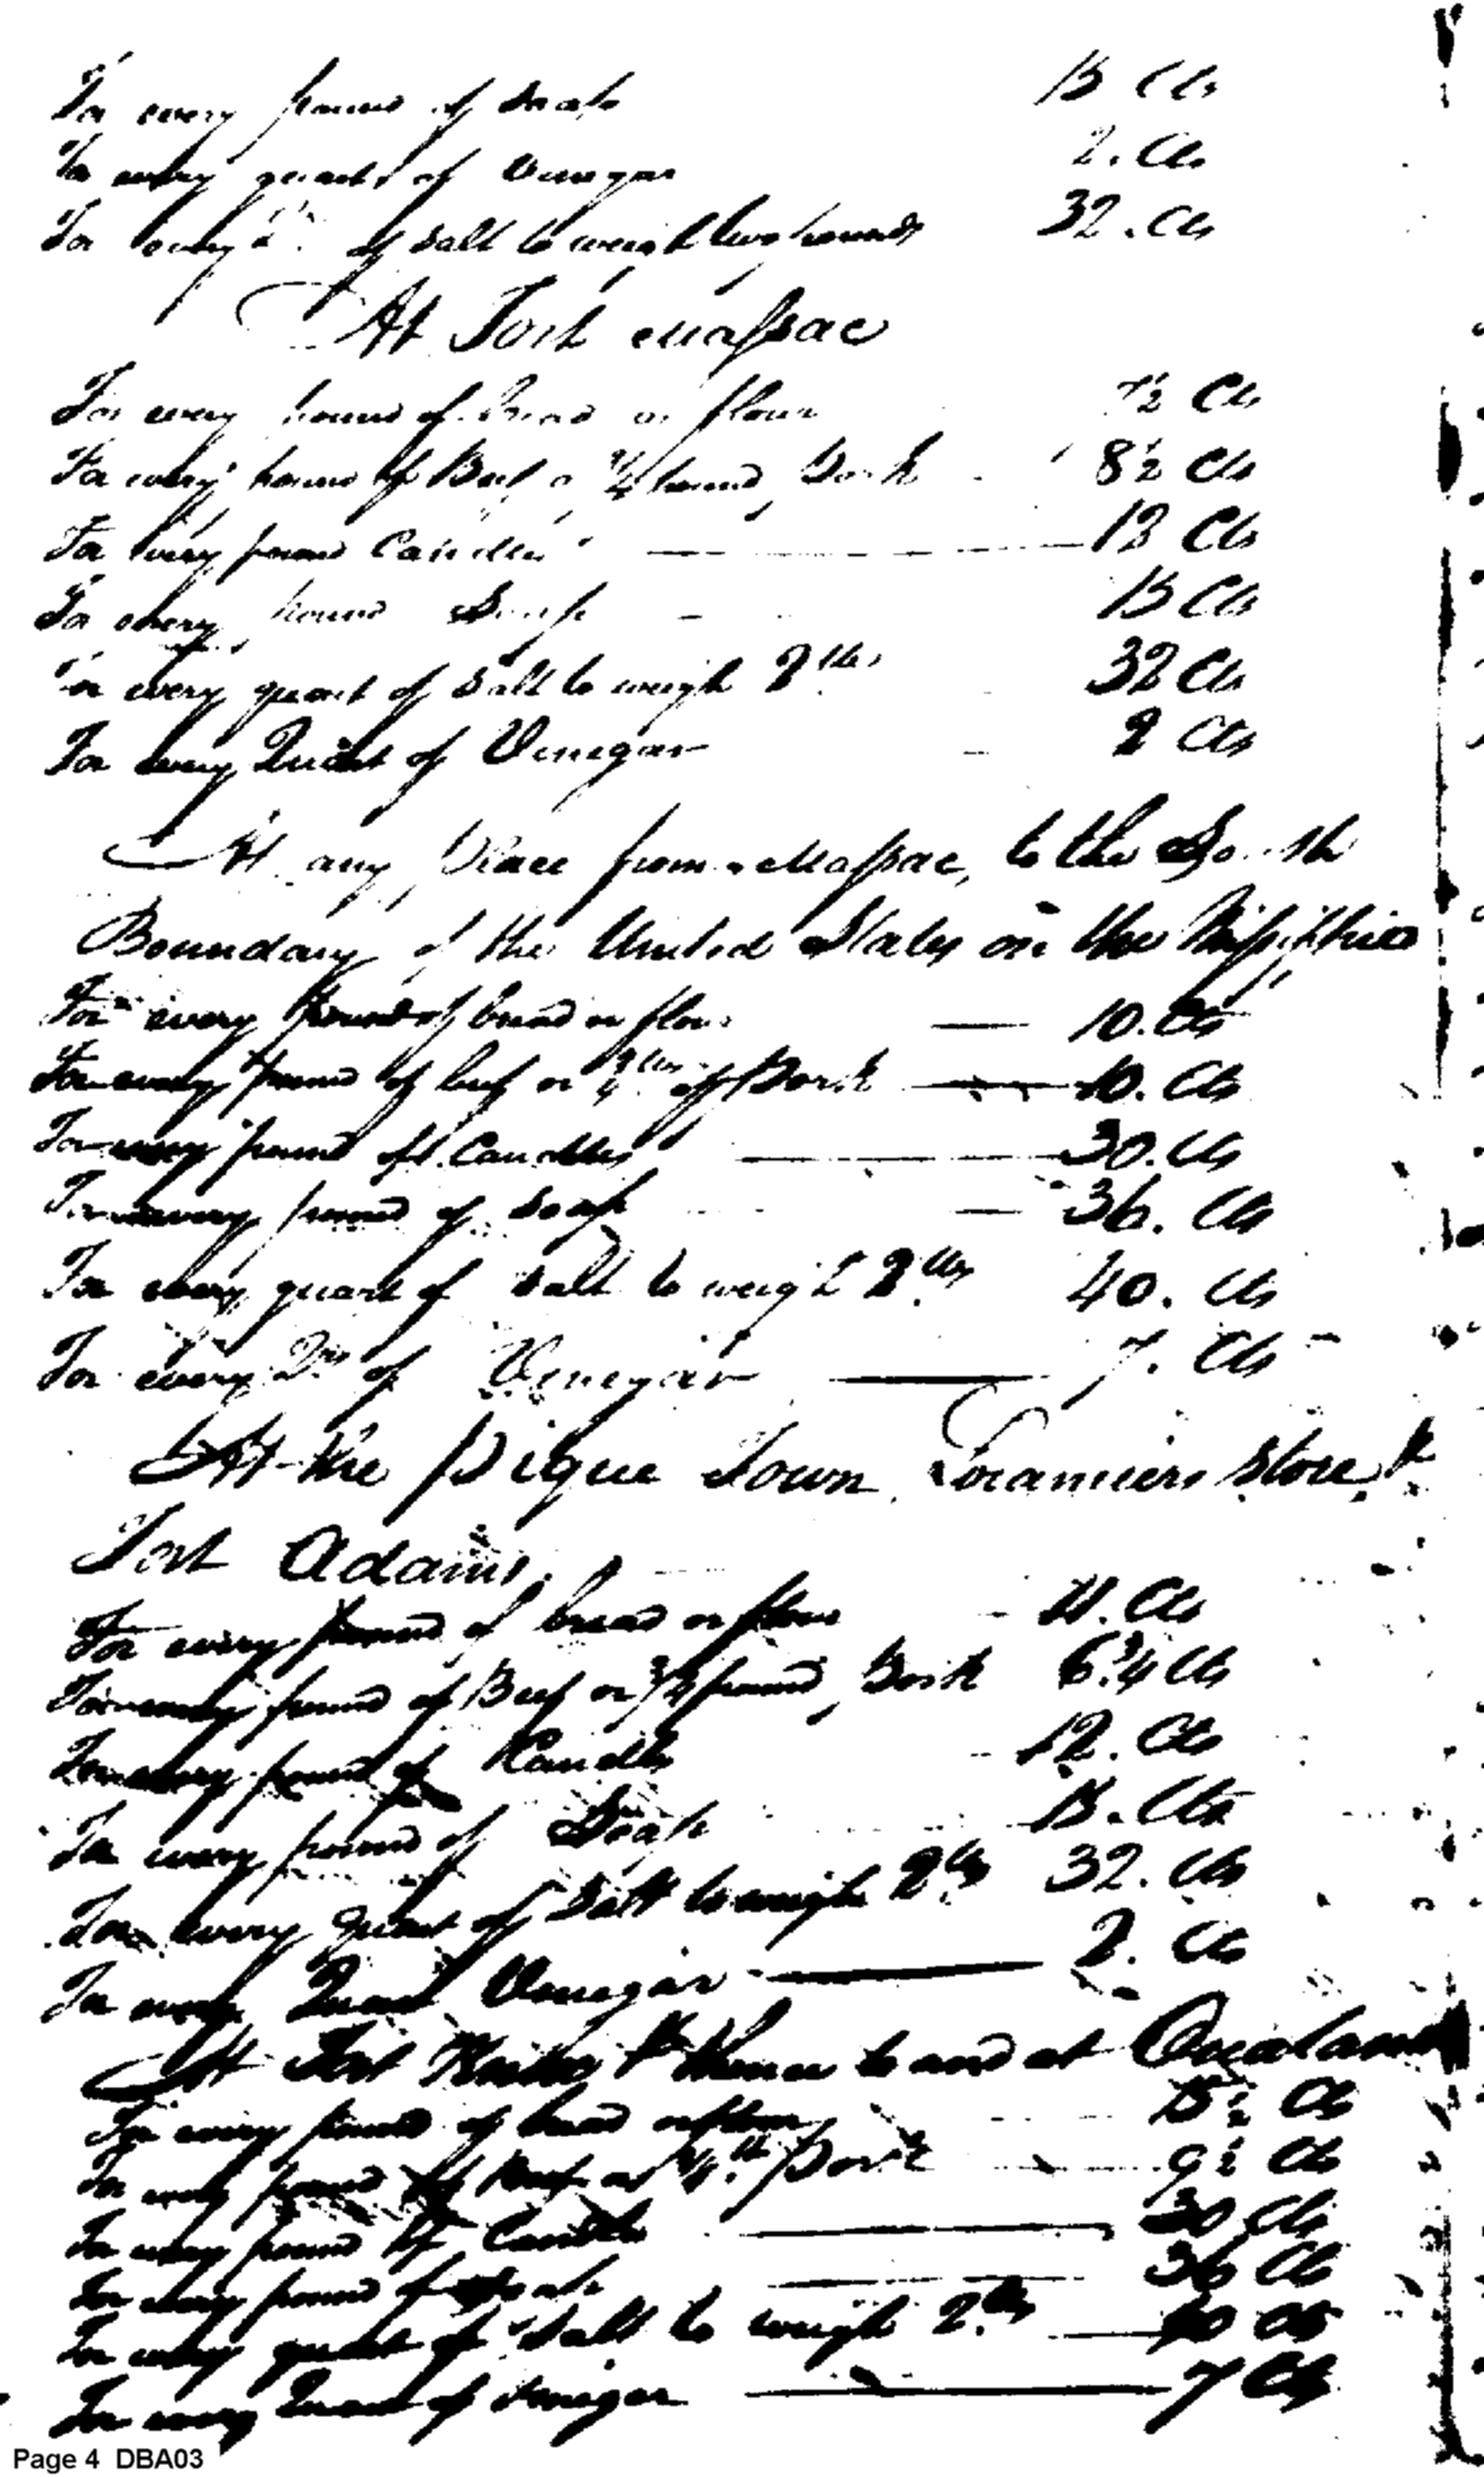 For every pound of Soap 15 Cts
For every quart of Vinegar 2. Cts
For every Do. of Salt to weigh two pounds 32. Cts
At Fort Massac
For every pound of bread or flour 7½ Cts
For every pound of Beef or ¾ pound, Pork - 8½ Cts
For every pound Candles 12 Cts
For every pound Soap - 15 Cts
For every quart of Salt to weigh 2 lbs 32 Cts
For every Quart of Vinegar - 2 Cts
At any place from Massac, to the South
Boundary of the United States on the Missisippi
For every pound of bread or flour — 10. Cts
For every pound of beef or ¾ lbs of Pork — 10. Cts
For every pound of Candles — 30. Cts
For every pound of Soap — 36. Cts
For every quart of Salt to weigh 2 lbs 40. Cts
For every Do of Vinegar — 7. Cts
At the Pique Town Loramiers Store, &
Fort Adams.
For every pound of bread or flour - 11. Cts
For every pound of Beef or ¾ pound, Pork 6¾ Cts
For every pound of Candles - 12. Cts
For every pound of Soap 15. Cts
For every quart of Salt to weigh 2 lbs 32. Cts
For every Quart Vinegar — 2. Cts
At Fort & thence to and at
For every pound of bread or flour 15½ Cts
For every pound of Beef or ¾ lb Pork — 9½ Cts
For every pound of Candles — 30 Cts
For every pound of Soap — 36 Cts
For every quart of Salt to weigh 2 lbs — 40 Cts
For every Quart of Vinegar — 7 Cts
Page 4 DBA03